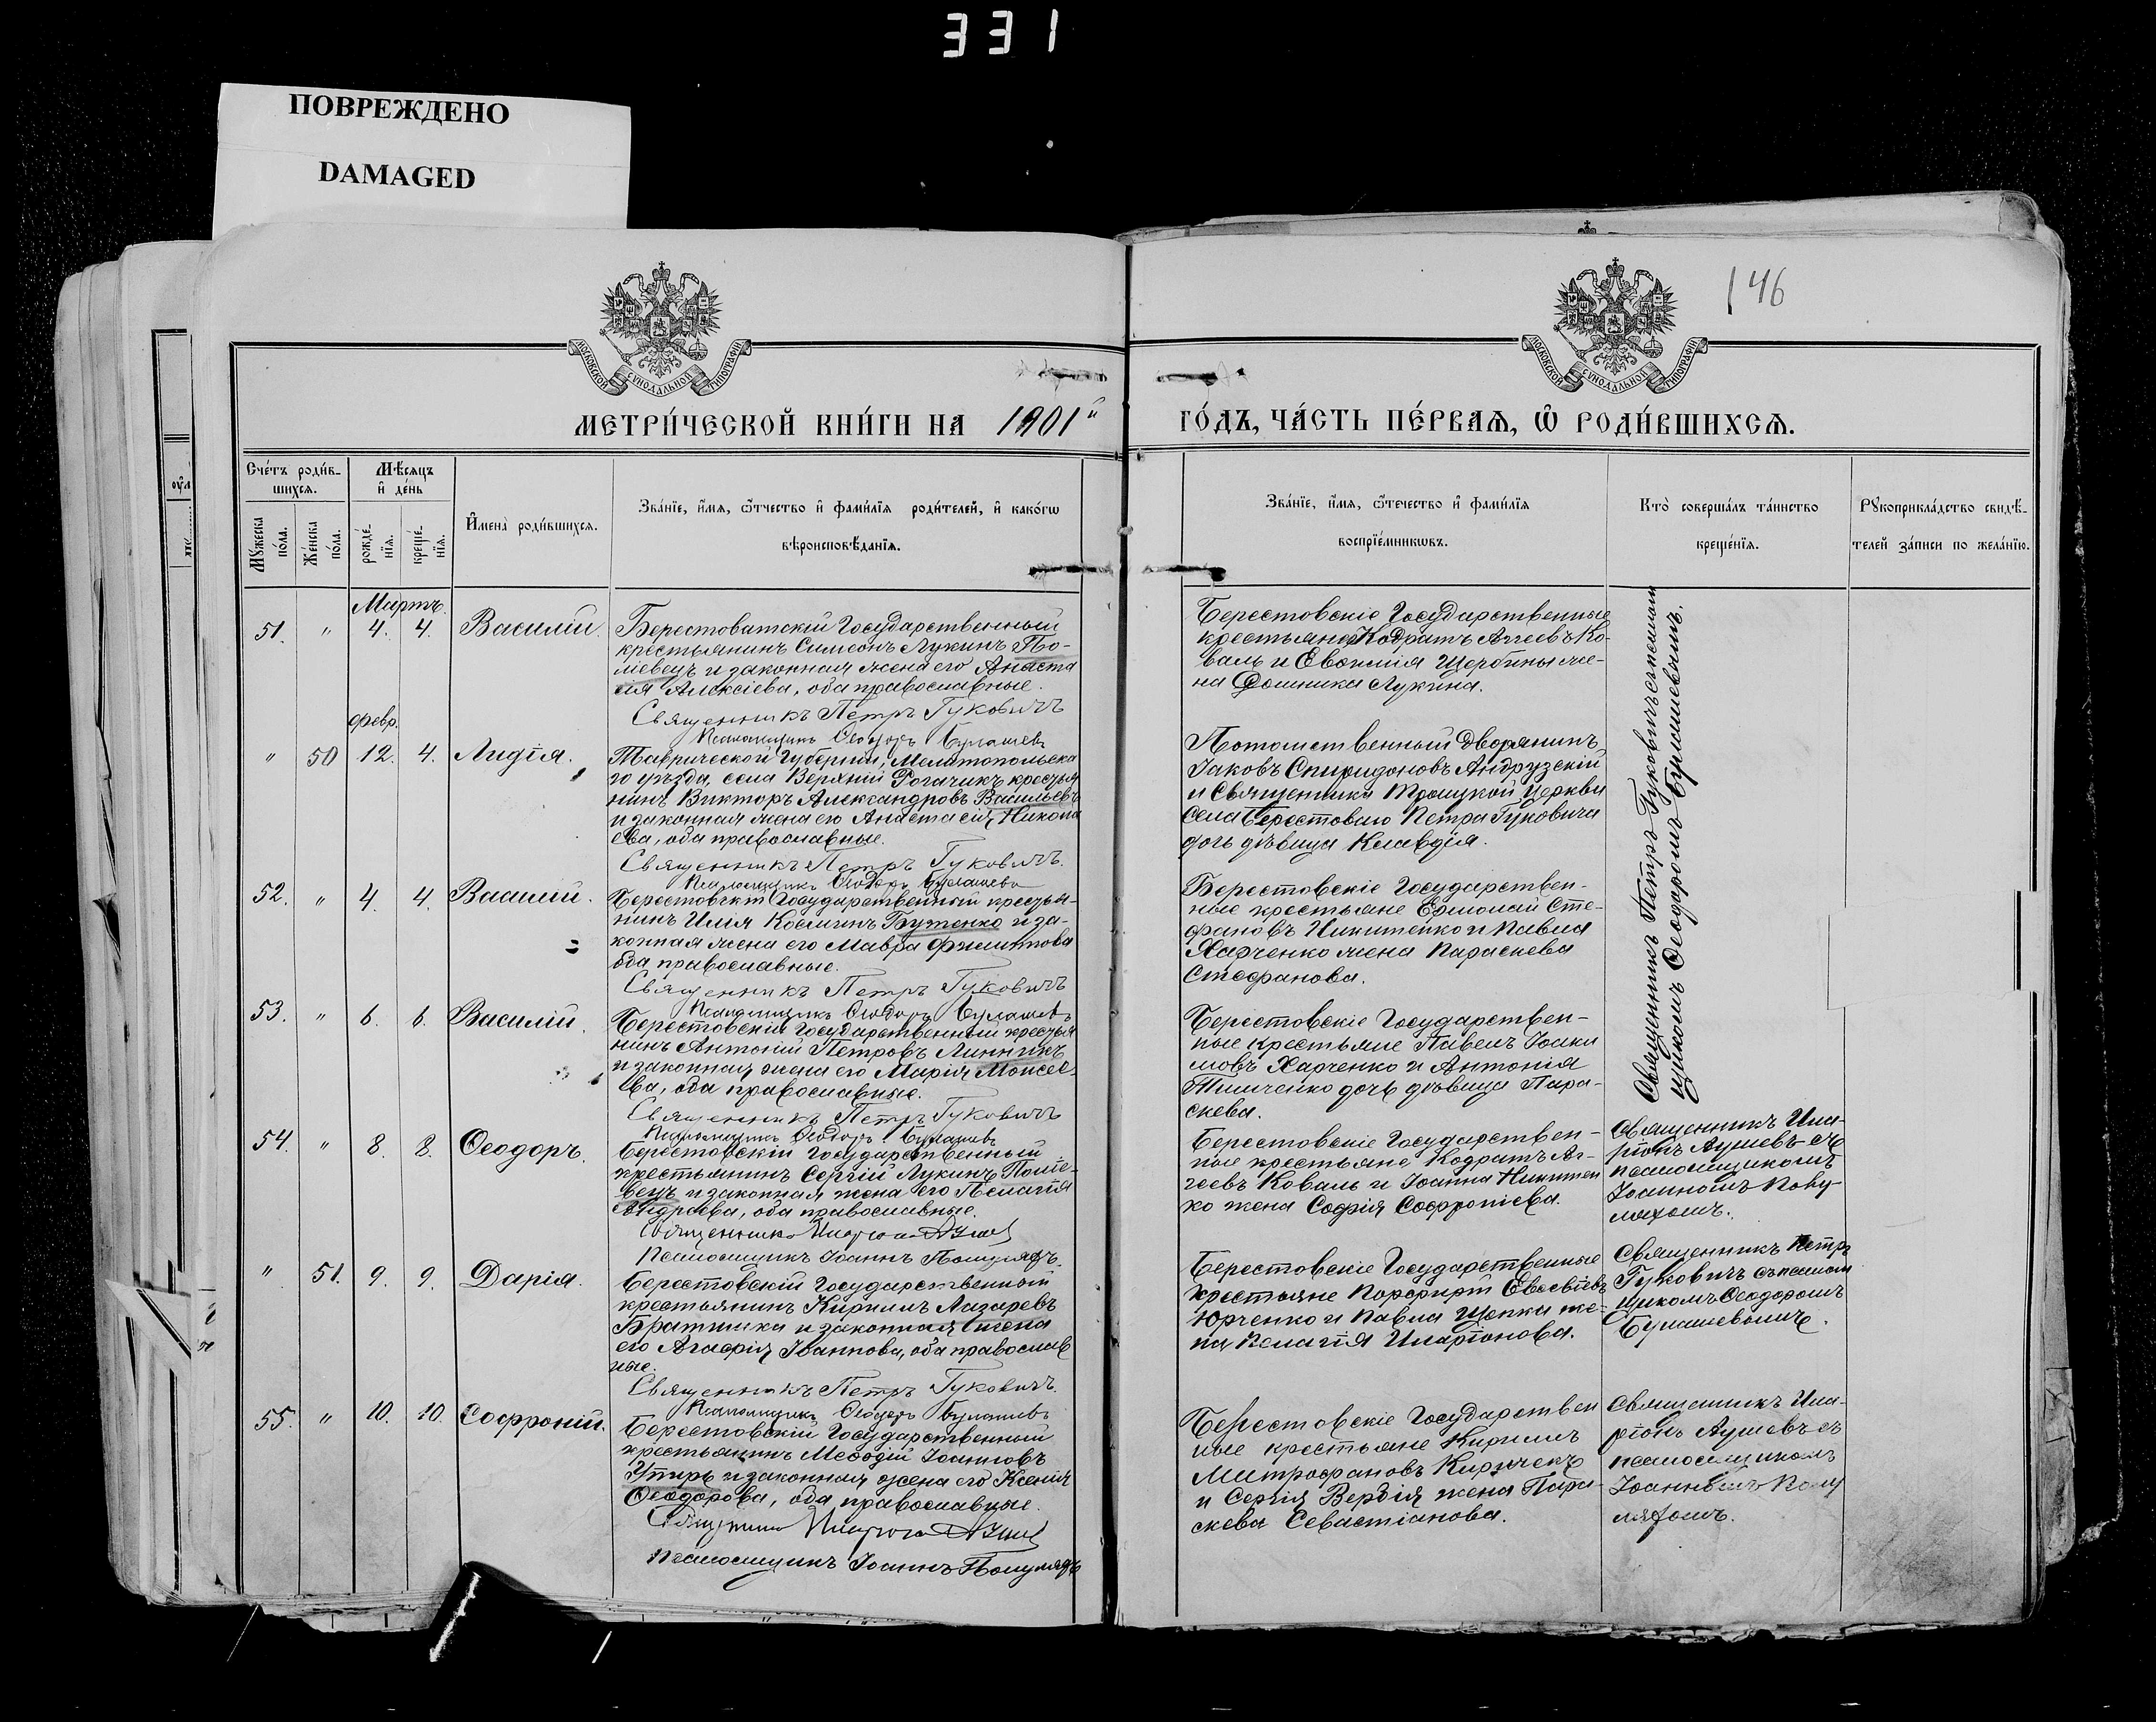 331
ПОВРЕЖДЕНО
DAMAGED
146
МОСКОВСКОЙ СѴНОДАЛЬНОЙ ТИПОГРАФІИ
МОСКОВСКОЙ СѴНОДАЛЬНОЙ ТИПОГРАФІИ
МЕТРИ́ЧЕСКОЙ КНИ́ГИ НА 1901й
ГО́ДЪ, ЧА́СТЬ ПЕ́РВАѦ, Ѡ҆ РОДИ́ВШИХСѦ.
Сче́тъ роди́в-
шихсѧ.
Мѣ́сяцъ
и҆ де́нь
Мꙋ́жеска
по́ла.
Же́нска
по́ла.
рожде́-
нїѧ.
креще́-
нїѧ.
И҆мена̀ роди́вшихсѧ.
Зва́нїе, и҆́мѧ, ѻ҆́тчество и҆ фами́лїѧ роди́телей, и҆ како́гѡ
вѣроисповѣ́данїѧ.
Зва́нїе, и҆́мѧ, ѻ҆́течество и҆ фами́лїѧ
воспрїе́мникѡвъ.
Кто̀ соверша́лъ та́инство
креще́нїѧ.
Рꙋкоприкла́дство свидѣ́-
телей за́писи по жела́нїю.
Мартъ.
51. " 4. 4. Василій.
Берестоватскій Государственный
крестьянинъ Симеонъ Лукинъ По-
ліевецъ и законная жена его Анаста
сія Алексіева, оба православные.
Священникъ Петръ Гуковичъ
Псаломщикъ Ѳеодоръ Булашевъ
Берестовскіе Государственные
крестьяне Кодратъ Аггеевъ Ко-
валь и Евфимія Щербины же-
на Домника Лукина.
Священникъ Петръ Гуковичъ съ псалом
щикомъ Ѳеодоромъ Булашевымъ.
февр.
" 50 12. 4. Лидія.
Таврической Губерніи, Мелитопольска
го уѣзда, села Верхній Рогачикъ крестья
нинъ Викторъ Александровъ Васильевъ
и законная жена его Анастасія Никола
ева, оба православные.
Священникъ Петръ Гуковичъ.
Псаломщикъ Ѳеодоръ Булашевъ
Потомственный Дворянинъ
Іаковъ Спиридоновъ Андрузскій
и Священника Троицкой Церкви
села Берестоваго Петра Гуковича
дочь дѣвица Клавдія.
52. " 4. 4. Василій.
Берестовскій Государственный крестья-
нинъ Илія Косминъ Бутенко и за-
конная жена его Мавра Филиппова
оба православные.
Священникъ Петръ Гуковичъ
Псаломщикъ Ѳеодоръ Булашевъ
Берестовскіе Государствен-
ные крестьяне Ермолай Сте-
фановъ Никитенко и Павла
Харченко жена Параскева
Стефанова.
53. " 6. 6. Василій.
Берестовскій Государственный крестья
нинъ Антоній Петровъ Линникъ
и законная жена его Марія Моисее-
ва, оба православные.
Священникъ Петръ Гуковичъ
Псаломщикъ Ѳеодоръ Булашевъ
Берестовскіе Государствен-
ные крестьяне Павелъ Іоаки
мовъ Харченко и Антонія
Тимченко дочь дѣвица Пара-
скева.
54. " 8. 8. Ѳеодоръ.
Берестовскій Государственный
крестьянинъ Сергій Лукинъ Поліе-
вецъ и законная жена его Пелагія
Андреева, оба православные.
Священникъ
Псаломщикъ Іоаннъ
Берестовскіе Государствен-
ные крестьяне Кодратъ Аг-
геевъ Коваль и Іоанна Никитен
ко жена Софія Софроніева.
Священникъ Ила-
ріонъ съ
псаломщикомъ
Іоанномъ
" 51. 9. 9. Дарія.
Берестовскій Государственный
крестьянинъ Кириллъ Лазаревъ
Братишка и законная жена
его Агафія Іоаннова, оба православ
ные.
Священникъ Петръ Гуковичъ.
Псаломщикъ Ѳеодоръ Булашевъ
Берестовскіе Государственные
крестьяне Порфирій Евсевіевъ
Юрченко и Павла Щепки же-
на Пелагія Иларіонова.
Священникъ Петръ
Гуковичъ съ псалом
щикомъ Ѳеодоромъ
Булашевымъ.
55. " 10. 10. Софроній.
Берестовскій Государственный
крестьянинъ Меѳодій Іоанновъ
Упырь и законная жена его Ксенія
Ѳеодорова, оба православные.
Священникъ
Псаломщикъ Іоаннъ
Берестовскіе Государствен
ные крестьяне Кириллъ
Митрофановъ Киричекъ
и Сергія Вербія жена Пара-
скева Севастіанова.
Священникъ Ила-
ріонъ съ
псаломщикомъ
Іоанномъ